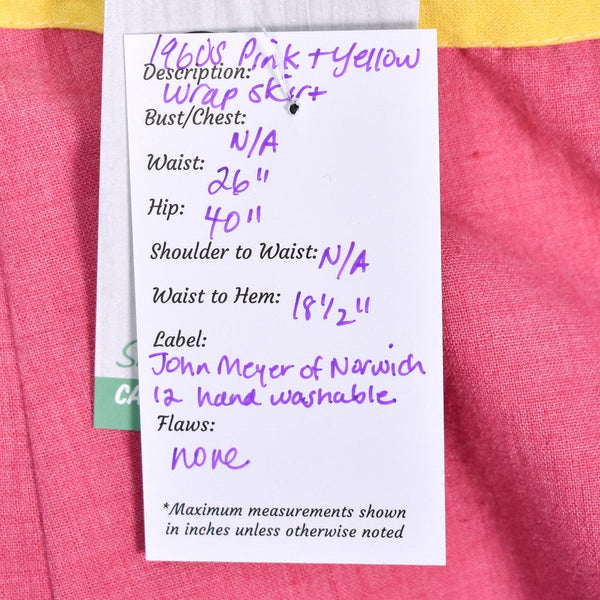 1960s Pink + Yellow
Description:
Wrap skirt
Bust/Chest:
N/A
Waist:
26"
Hip:
40"
Shoulder to Waist: N/A
Waist to Hem: 18 1/2"
Label:
John Meyer of Norwich
12 hand washable
Flaws:
none
*Maximum measurements shown
in inches unless otherwise noted